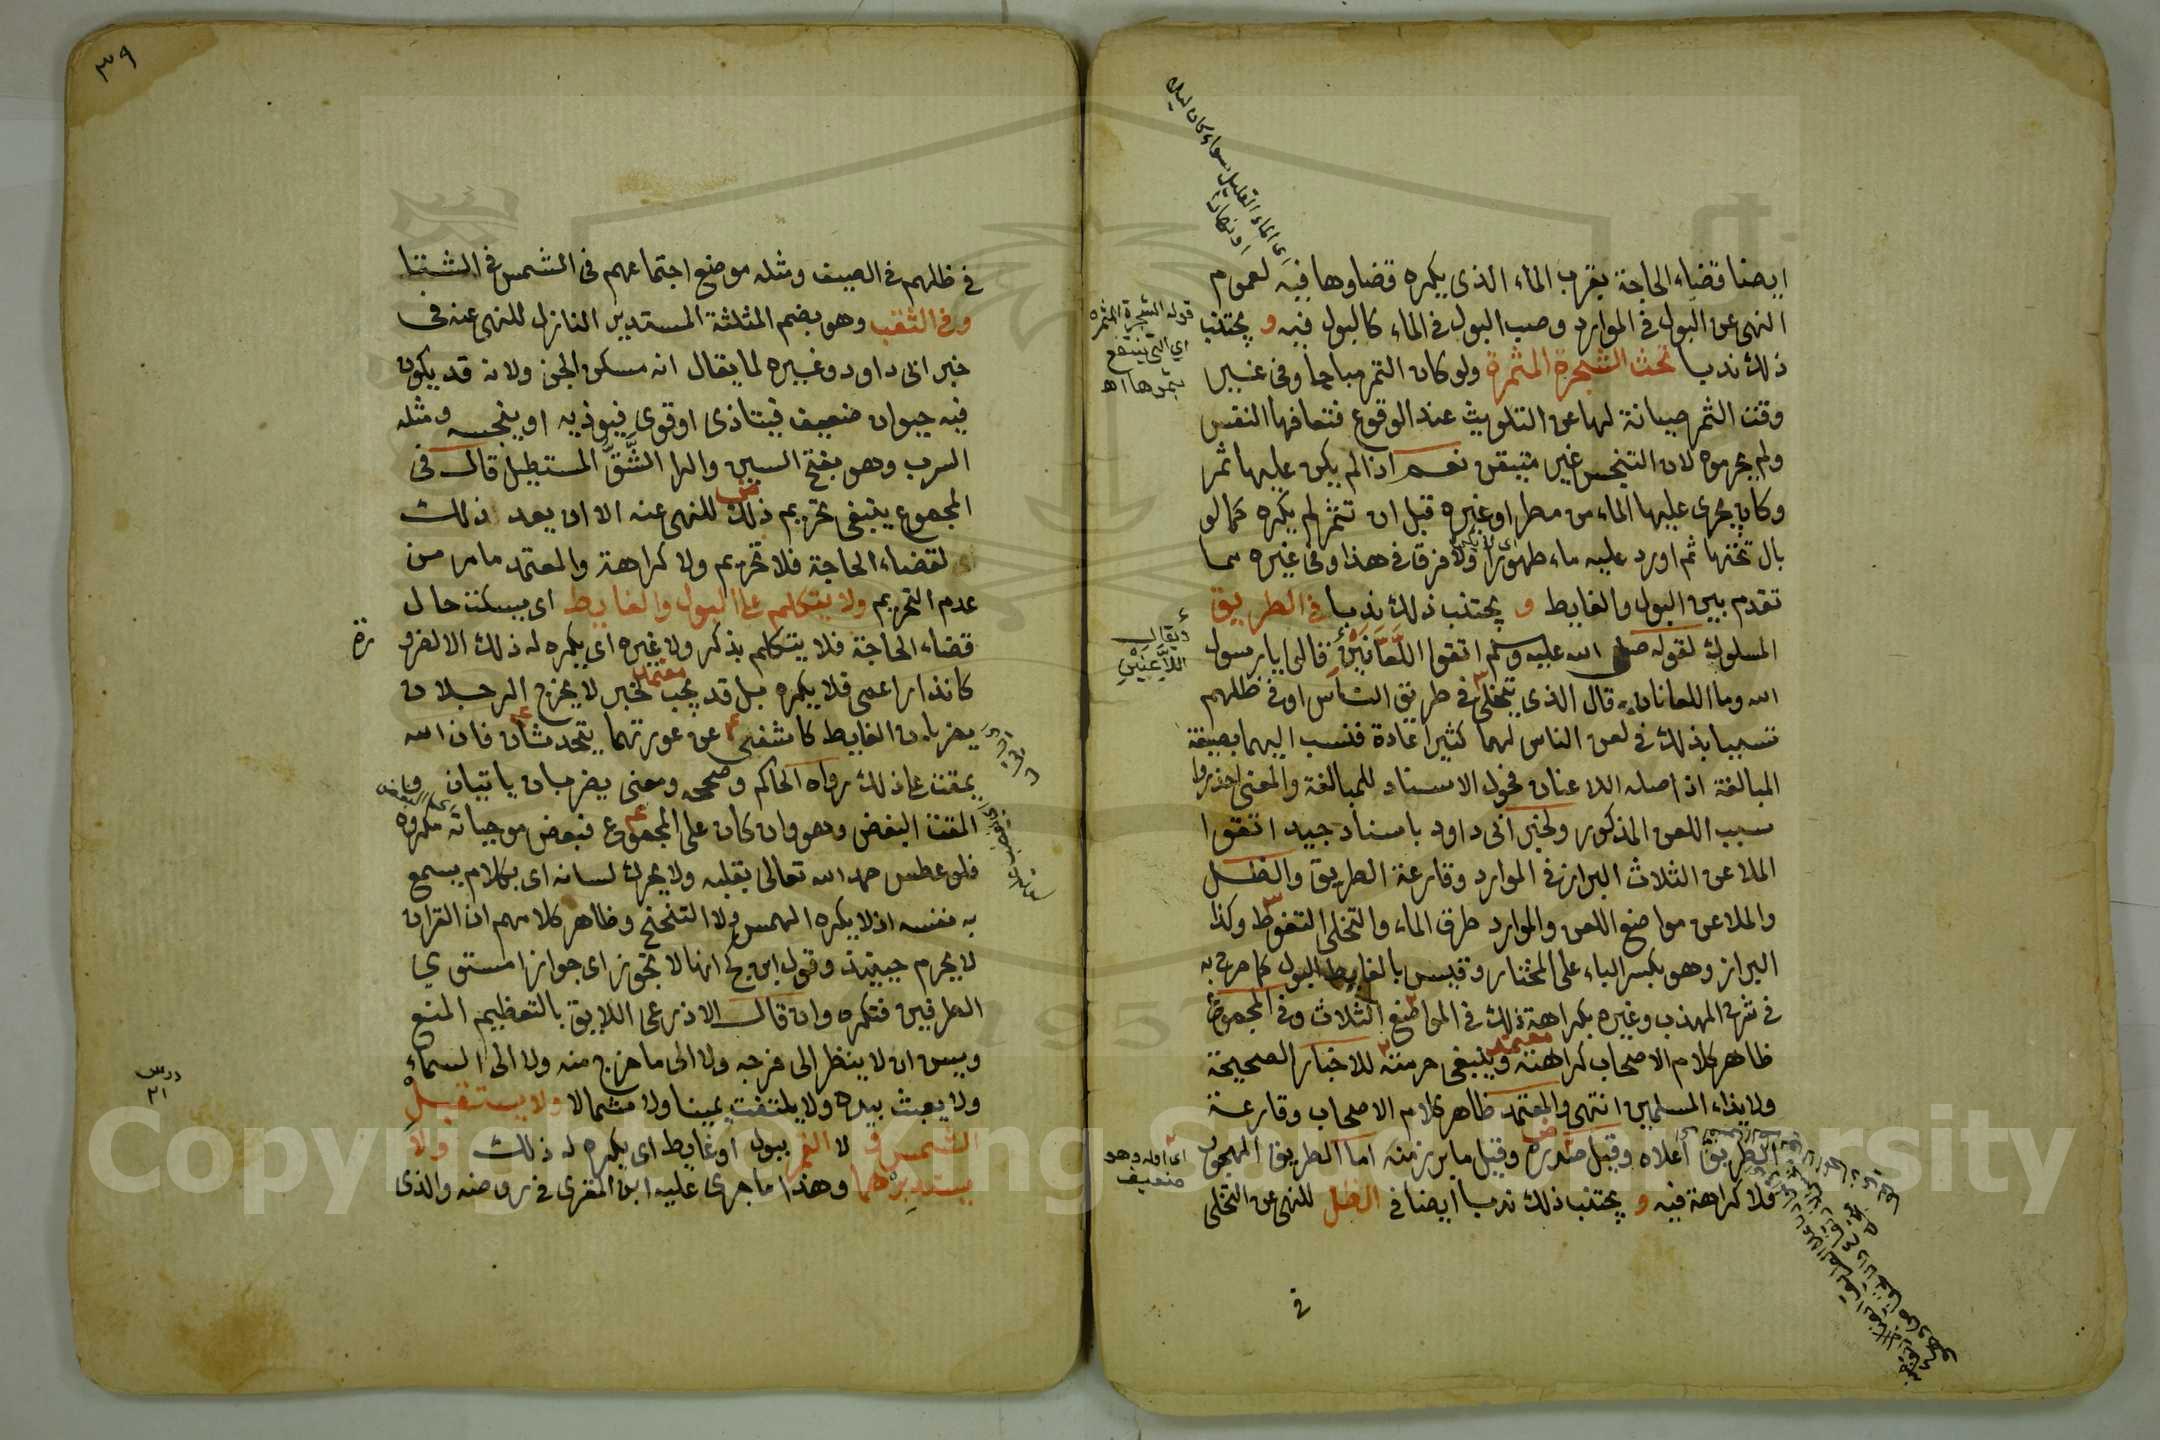 ايضا قضاء الحاجة بقرب الماء الذي يكره قضاوها فيه لعموم
النهي عن البول في الموارد وصب البول في الماء كالبول فيه و يجتنب
ذلك ندبا تحت الشجرة المثمرة ولو كان الثمر مباحا وفي غير
وقت الثمر صيانة لها عن التلويث عند الوقوع فتعافها النفس
ولم يحرموه لان التنجس غير متيقن نعم اذا لم يكن عليها ثمر
وكان يجرى عليها الماء من مطر او غيره قبل ان تثمر لم يكره كما لو
بال تحتها ثم اورد عليه ماء طهورا ولا فرق في هذا وفي غيره مما
تقدم بين البول والغايط و يجتنب ذلك ندبا في الطريق
المسلوك لقوله صلى الله عليه وسلم اتقوا اللعانين قالوا يا رسول
الله وما اللعانان قال الذي يتخلى في طريق الناس او في ظلهم
تسببا بذلك في لعن الناس لهما كثيرا عادة فنسب اليهما بصيغة
المبالغة اذ اصله اللاعنان فحول الاسناد للمبالغة والمعنى احذروا
سبب اللعن المذكور ولخبر ابي داود باسناد جيد اتقوا
الملاعن الثلاث البراز في الموارد وقارعة الطريق والظل
والملاعن مواضع اللعن والموارد طرق الماء والتخلي التغوط وكذا
البراز وهو بكسر الباء على المختار وقيس بالغايط البول كما صرح به
في شرح المهذب وغيره بكراهة ذلك في المواضع الثلاث وفي المجموع
ظاهر كلام الاصحاب كراهته وينبغي حرمته للاخبار الصحيحة
ولايذاء المسلمين انتهى والمعتمد ظاهر كلام الاصحاب وقارعة
الطريق اعلاه وقيل صدره وقيل ما برز منه اما الطريق المهجور
فلا كراهة فيه و يجتنب ذلك ندبا ايضا في الظل للنهي عن التخلي
في
اي الماء القليل سواء كان ليلا
او نهارا
قوله الشجرة المثمرة
اي التي ينتفع
بثمرها اه
ويقال
اللاعنين
اي اوله وهو
ضعيف
٣٩
في ظلهم في الصيف ومثله موضع اجتماعهم في الشمس في الشتا
و في الثقب وهو بضم المثلثة المستدير النازل للنهي عنه في
خبر ابي داود وغيره لما يقال انه مسكن الجن ولانه قد يكون
فيه حيوان ضعيف فيتاذى او قوي فيوذيه او ينجسه ومثله
السرب وهو بفتح السين والرا الشق المستطيل قال في
المجموع ينبغي تحريم ذلك للنهي عنه الا ان يعد ذلك
لقضاء الحاجة فلا تحريم ولا كراهة والمعتمد ما مر من
عدم التحريم ولا يتكلم على البول والغايط اي يسكت حال
قضاء الحاجة فلا يتكلم بذكر ولا غيره اي يكره له ذلك الا لضرو
رة
كانذار اعمى فلا يكره بل قد يجب لخبر لا يخرج الرجلان
يضربان الغايط كاشفي عن عورتهما يتحدثان فان الله
يمقت على ذلك رواه الحاكم وصححه ومعنى يضربان ياتيان و
المقت البغض وهو وان كان على المجموع فبعض موجباته مكروه
فلو عطس حمد الله تعالى بقلبه ولا يحرك لسانه اي بكلام يسمع
به نفسه اذ لا يكره الهمس ولا التنحنح وظاهر كلامهم ان القران
لا يحرم حينيذ وقول ابن كج انها لا تجوز اي جوازا مستوي
الطرفين فتكره وان قال الاذرعي اللايق بالتعظيم المنع
ويسن ان لا ينظر الى فرجه ولا الى ما خرج منه ولا الى السماء
ولا يعبث بيده ولا يلتفت يمينا ولا شمالا ولا يستقبل
الشمس و لا القمر ببول او غايط اي يكره له ذلك ولا
يستدبرهما وهذا ما جرى عليه ابن المقري في روضه والذي
درس
٢١
Copyright © King Saud University
1957